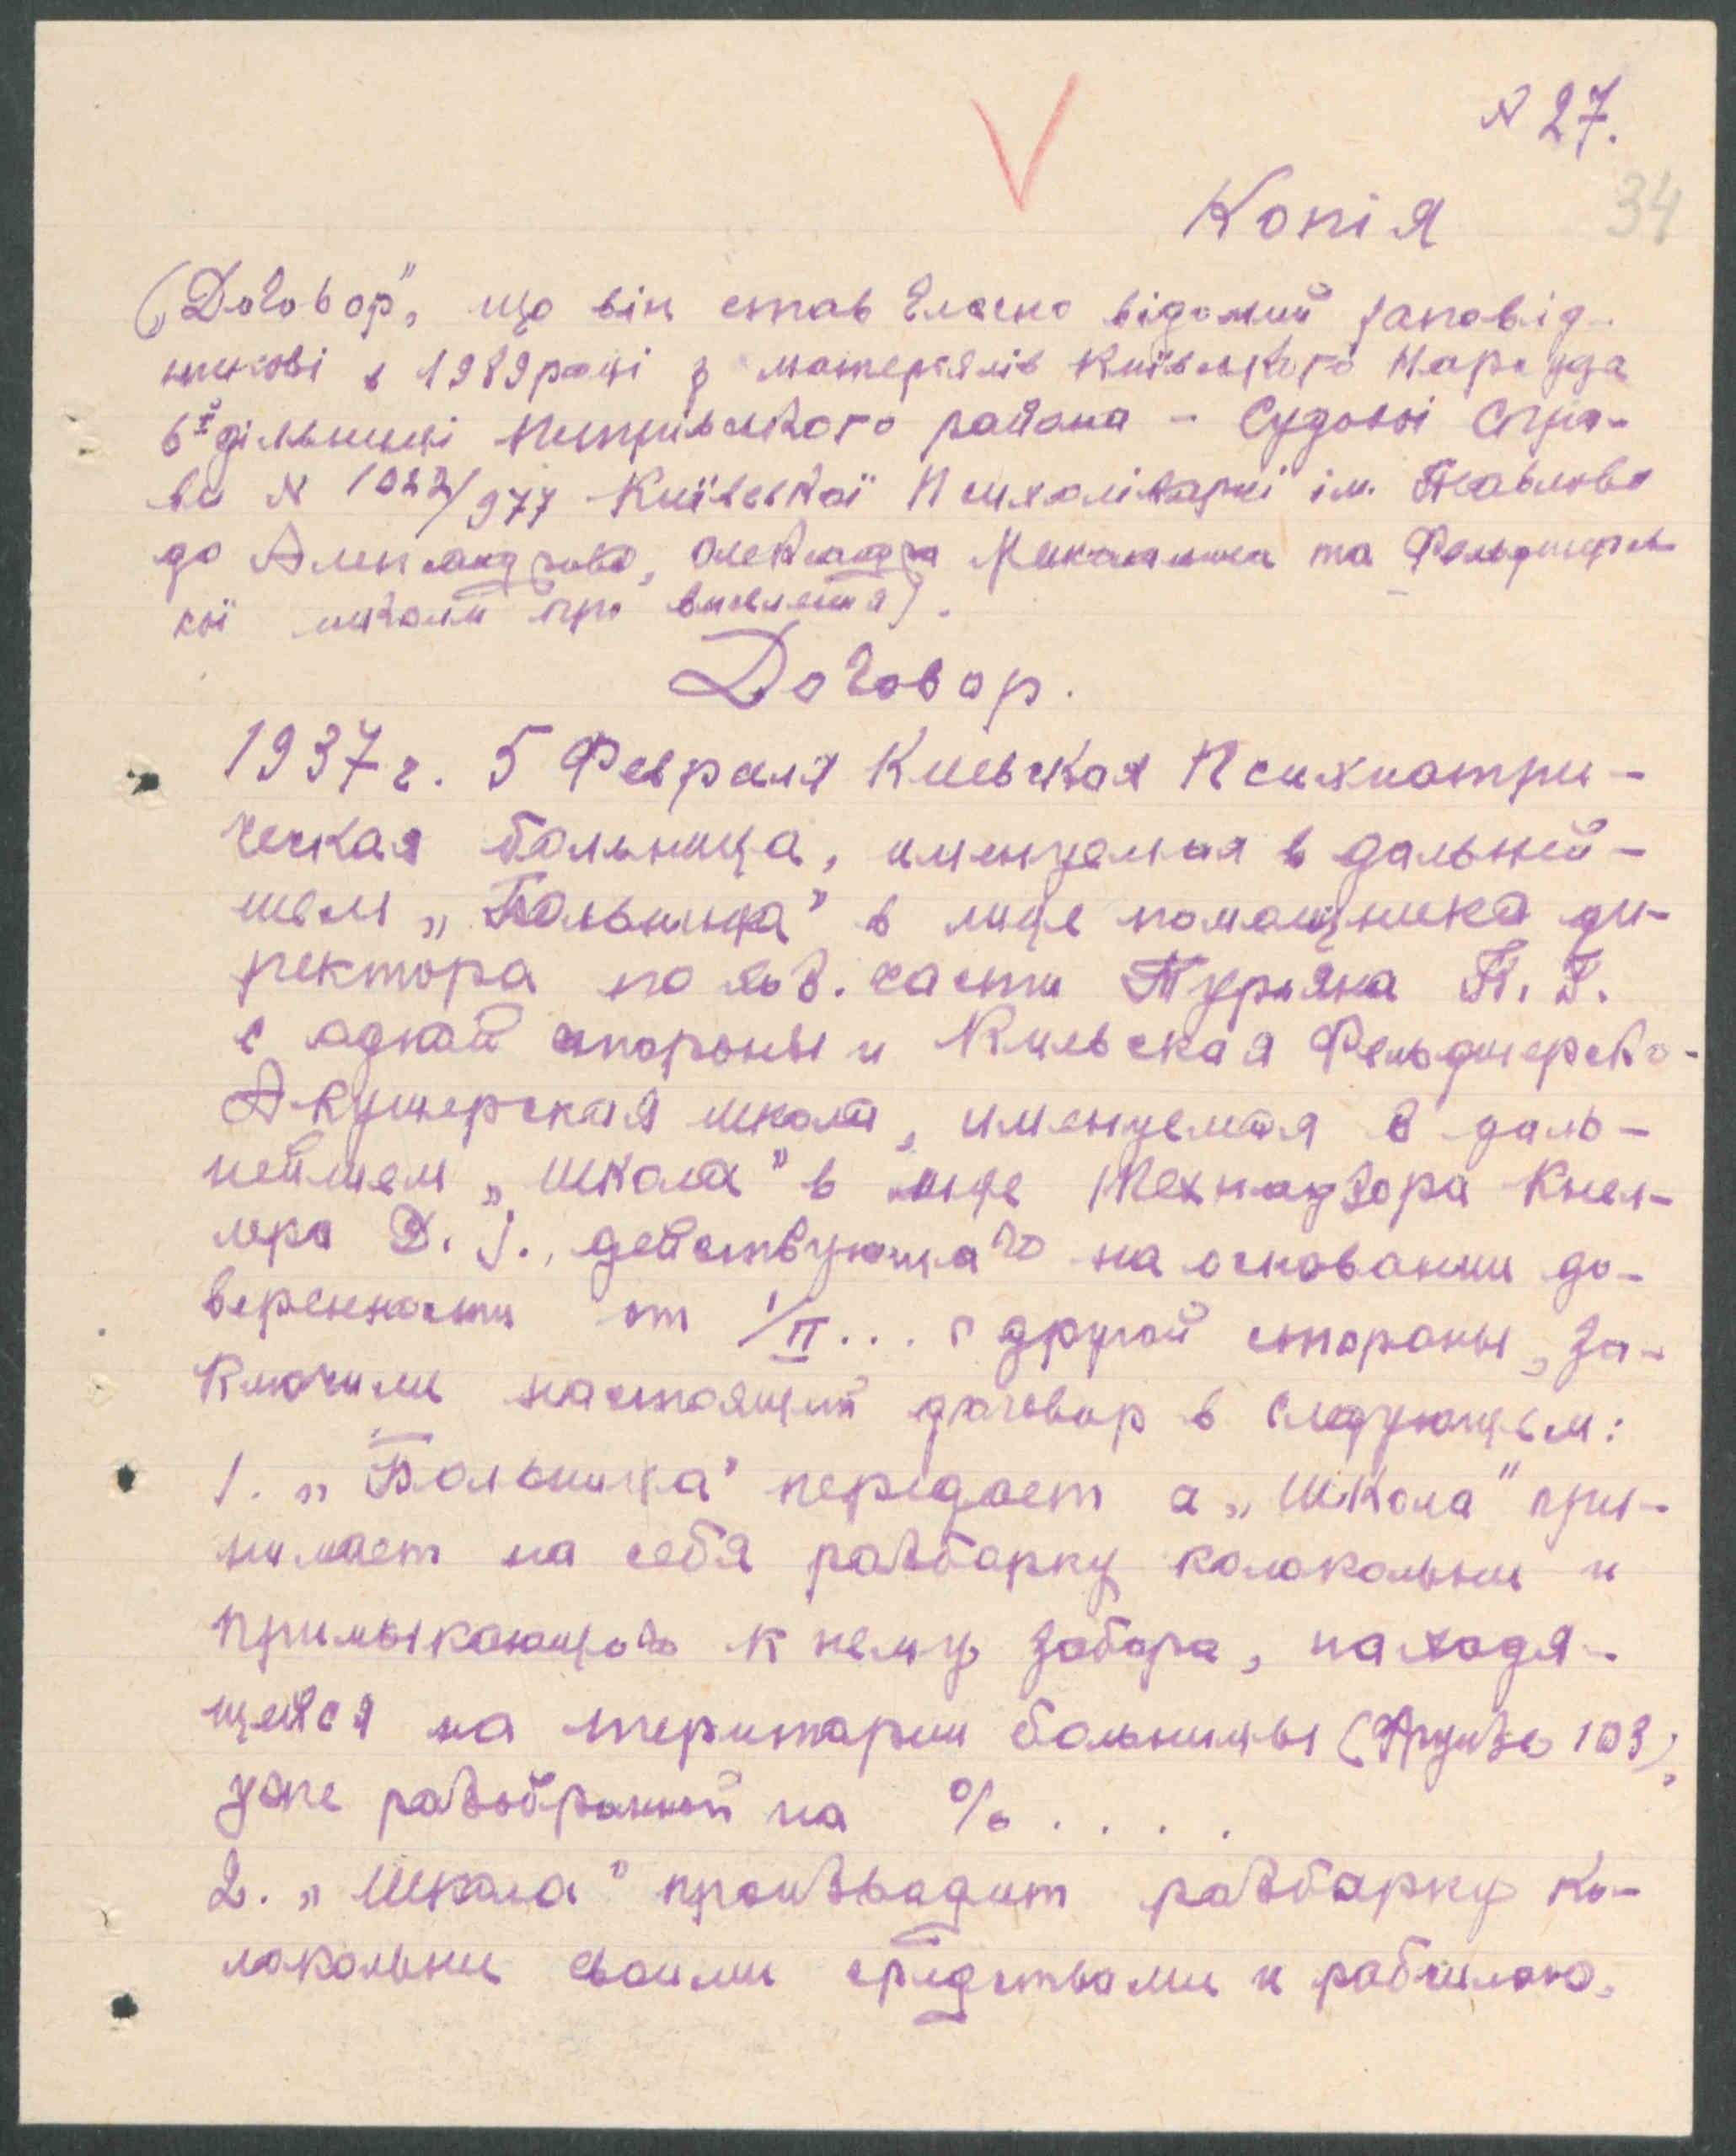 N 27.
34
Копія
("Договор", що він став гласно відомий заповід-
никові в 1939 році з матеріялів Київського Нарсуда
6ї дільниці Петрівського района - Судової Спра-
ви N 1022/977 Київської Психолікарні ім. Павлова
до Александрова, Олександра та Фельдшерсь-
кої школи про виселення).
Договор.
1937 г. 5 Февраля Киевская Психиатри-
ческая больница, именуемая в дальней-
шем „Больница" в лице помощника ди-
ректора по хоз. части Туржяна П. Г.
с одной стороны и Киевская Фельдшерско-
Акушерская школа, именуемая в даль-
нейшем „Школа" в лице Технадзора
Д. J., действующаго на основании до-
веренности от 1/II... с другой стороны, за-
ключили настоящий договор в следующем:
1. „Больница" передает а „Школа" при-
нимает на себя разборку колокольни и
примыкающего к нему забора, находя-
щейся на територии больницы (Фрунзе 103),
уже разобранной на % . . . .
2. „Школа" производит разборку ко-
локольни своими средствами и рабсилою.